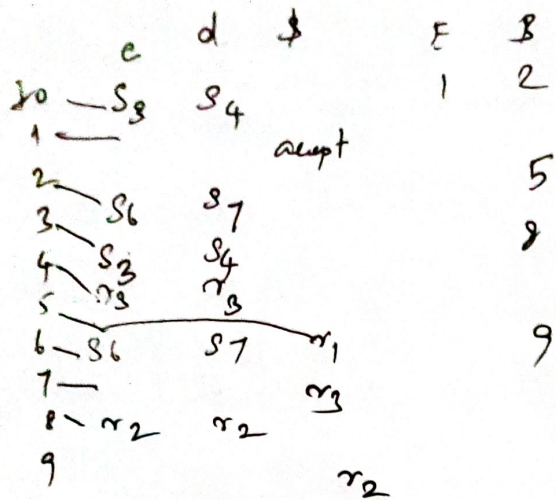 c d $ E B
I0 S3 S4 1 2
1 accept
2 S6 S7 5
3 S3 S4 8
4 r3 r3
5 r1
6 S6 S7 9
7 r3
8 r2 r2
9 r2